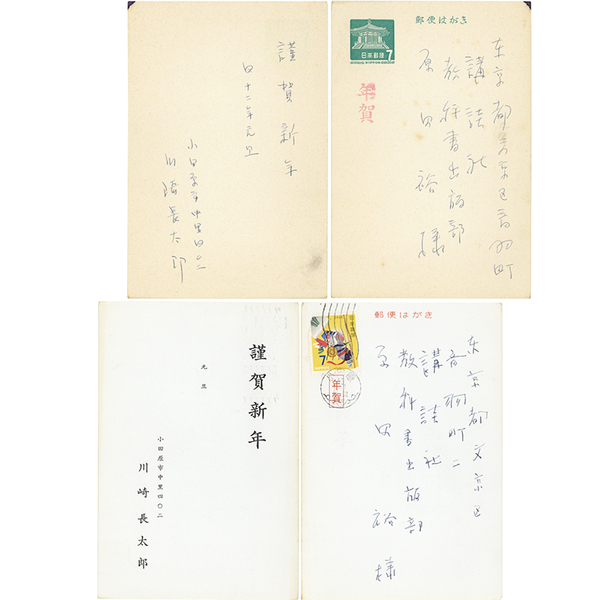 謹賀新年
四十二年元旦
小田原市中里四〇二
川崎長太郎
郵便はがき
日本郵便
7
年賀
東京都文京区音羽町
講談社
教科書出版部
原田裕様
謹賀新年
元旦
小田原市中里四〇二
川崎長太郎
郵便はがき
7
年賀
東京都文京区
音羽町二
講談社
教科書出版部
原田裕様